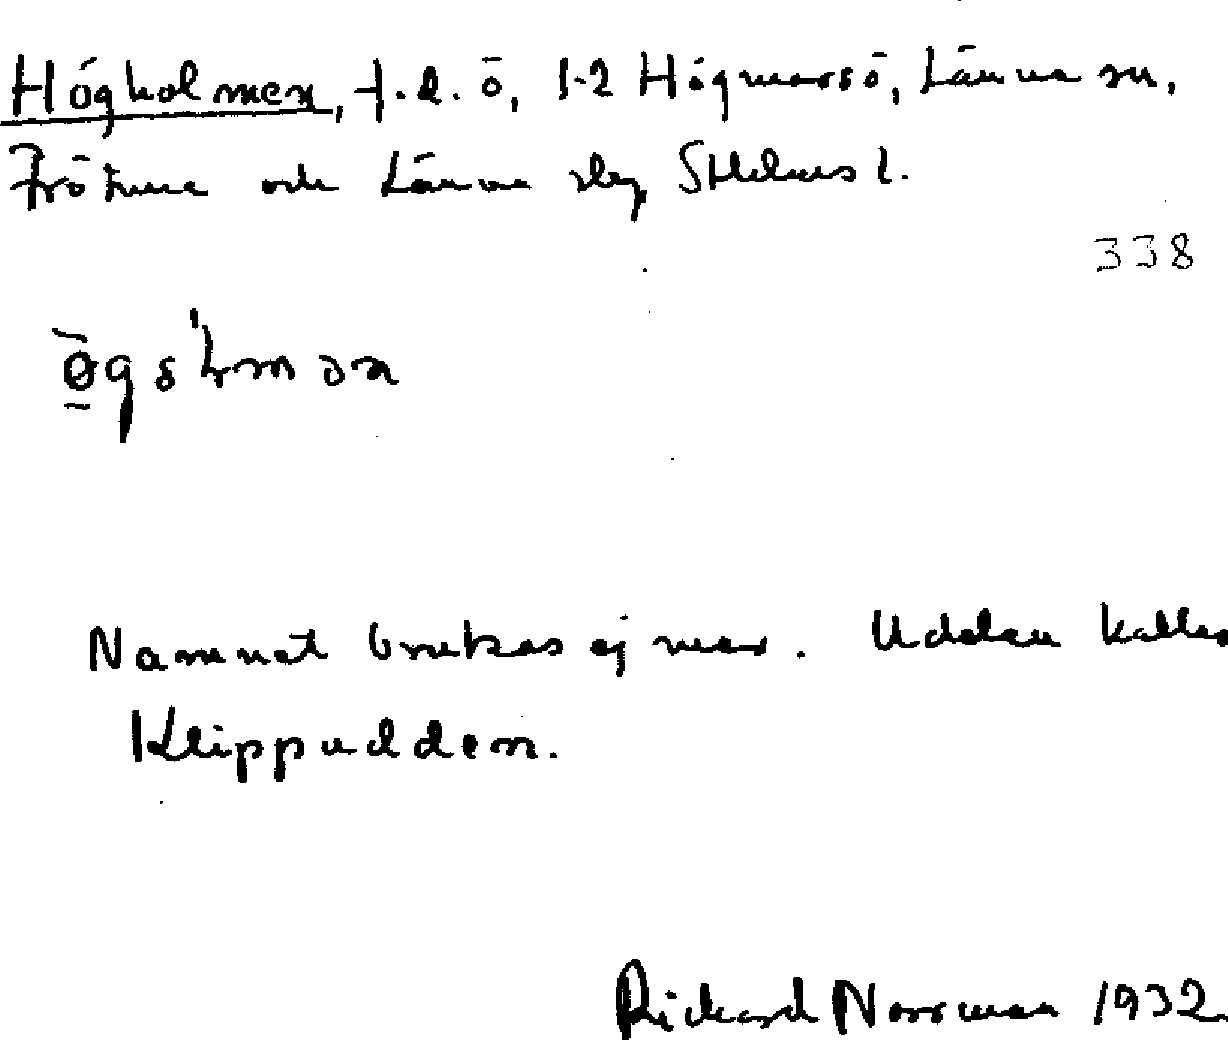 Högholmen, f.d. ö, 1-2 Högmarsö, Länna sn,
Frötuna och Länna slg Sthlms l.
338
Namnet brukas ej mer. Udden kallas
Klippudden.
Rickard Norrman 1932